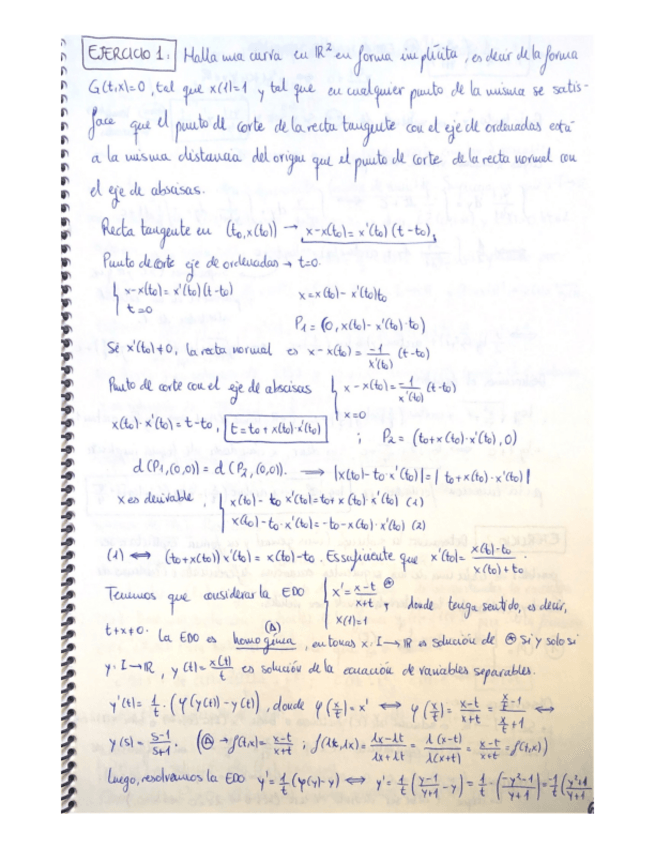 EJERCICIO 1: Halla una curva en ℝ² en forma implícita, es decir de la forma
G(t,x)=0, tal que x(1)=1 y tal que en cualquier punto de la misma se satis-
face que el punto de corte de la recta tangente con el eje de ordenadas está
a la misma distancia del origen que el punto de corte de la recta normal con
el eje de abscisas.
Recta tangente en (t₀,x(t₀)) → x-x(t₀)=x'(t₀)(t-t₀).
Punto de corte eje de ordenadas → t=0.
{ x-x(t₀)=x'(t₀)(t-t₀) x=x(t₀)-x'(t₀)t₀
t=0
P₁=(0, x(t₀)-x'(t₀)·t₀)
Si x'(t₀)≠0, la recta normal es x-x(t₀)= -1/x'(t₀) (t-t₀)
Punto de corte con el eje de abscisas { x-x(t₀)= -1/x'(t₀) (t-t₀)
x=0
x(t₀)·x'(t₀)=t-t₀, t=t₀+x(t₀)·x'(t₀) ; P₂=(t₀+x(t₀)·x'(t₀),0)
d(P₁,(0,0))=d(P₂,(0,0)). ⟹ |x(t₀)-t₀·x'(t₀)|=|t₀+x(t₀)·x'(t₀)|
x es derivable, { x(t₀)-t₀ x'(t₀)=t₀+x(t₀)·x'(t₀) (1)
x(t₀)-t₀·x'(t₀)=-t₀-x(t₀)·x'(t₀) (2)
(1) ⟷ (t₀+x(t₀))x'(t₀)=x(t₀)-t₀. Es suficiente que x'(t₀)= x(t₀)-t₀/x(t₀)+t₀.
Tenemos que considerar la EDO { x'= x-t/x+t ⊛, donde tenga sentido, es decir,
x(1)=1
t+x≠0. La EDO es homogénea (Δ), entonces x: I→ℝ es solución de ⊛ si y solo si
y: I→ℝ, y(t)= x(t)/t es solución de la ecuación de variables separables.
y'(t)= 1/t·(φ(y(t))-y(t)), donde φ(x/t)=x' ⟺ φ(x/t)= x-t/x+t = x/t-1/x/t+1 ⟺
φ(s)= s-1/s+1. (Δ → f(t,x)= x-t/x+t ; f(λt,λx)= λx-λt/λx+λt = λ(x-t)/λ(x+t) = x-t/x+t =f(t,x))
Luego, resolvamos la EDO y'= 1/t(φ(y)-y) ⟺ y'= 1/t(y-1/y+1 -y)= 1/t·(-y²-1/y+1)=-1/t(y²+1/y+1